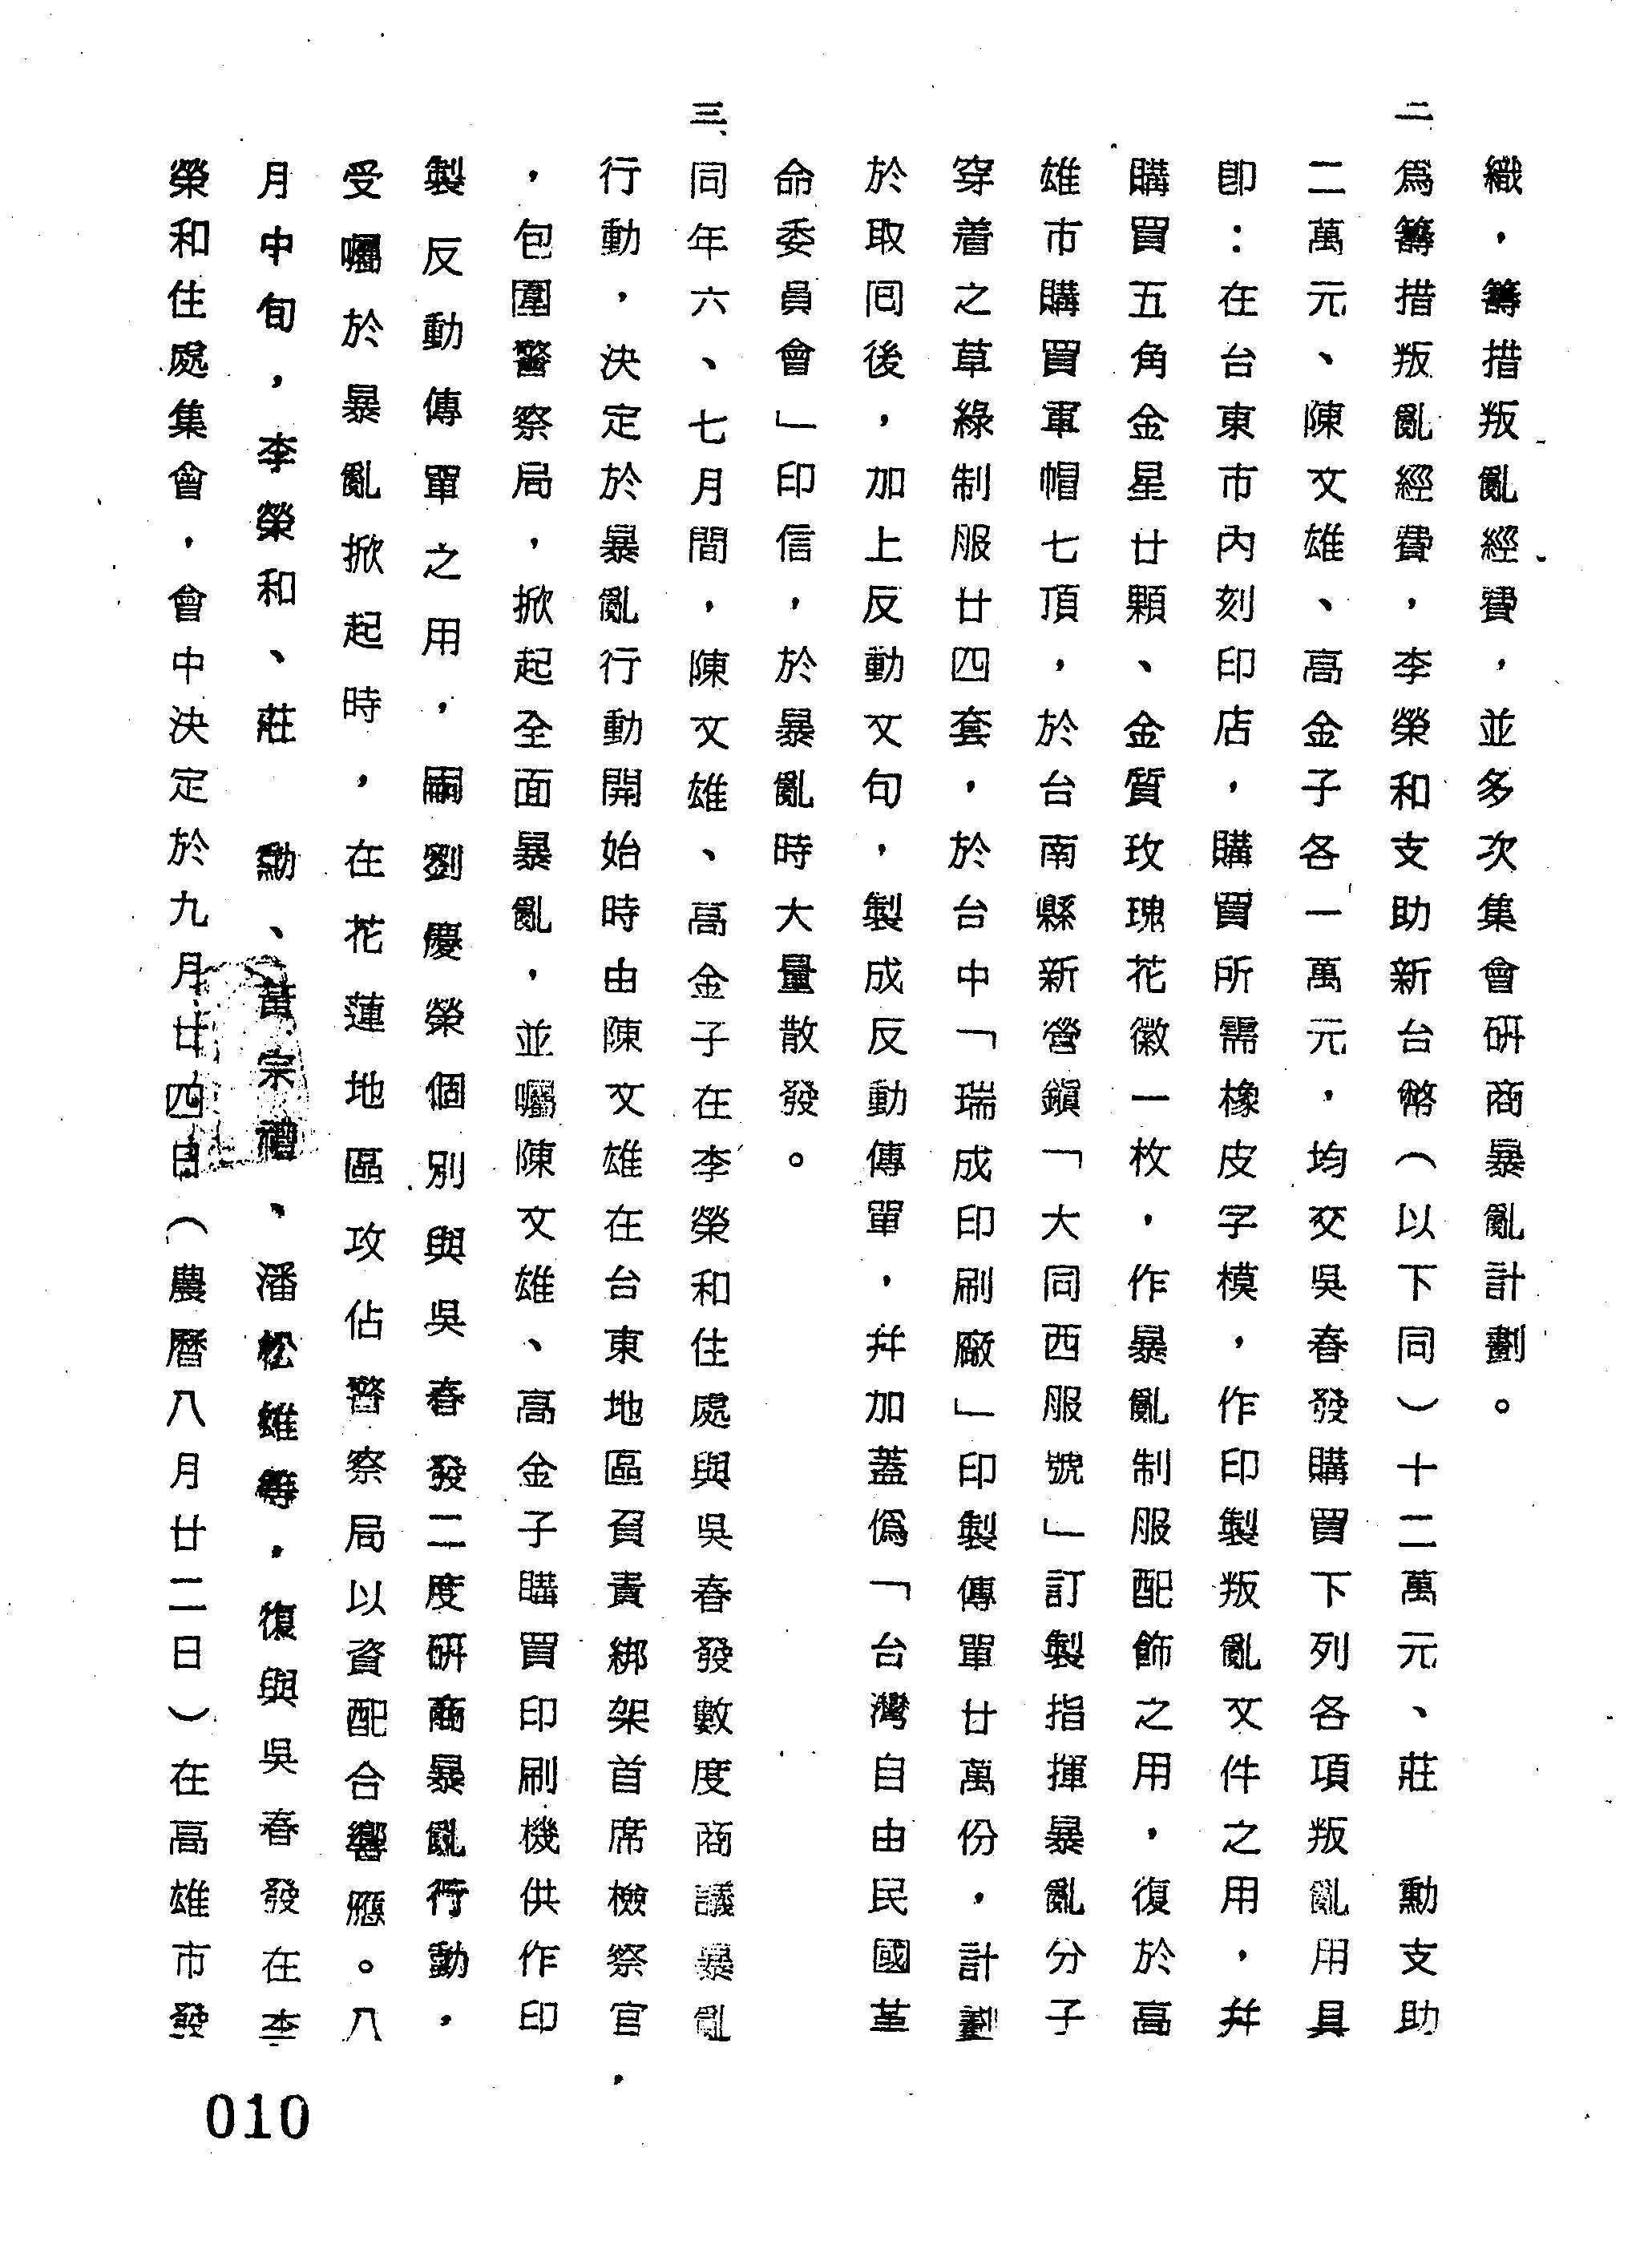 織，籌措叛亂經費，並多次集會研商暴亂計劃。
二、爲籌措叛亂經費，李榮和支助新台幣（以下同）十二萬元、莊　勳支助
二萬元、陳文雄、高金子各一萬元，均交吳春發購買下列各項叛亂用具
卽：在台東市內刻印店，購買所需橡皮字模，作印製叛亂文件之用，幷
購買五角金星廿顆、金質玫瑰花徽一枚，作暴亂制服配飾之用，復於高
雄市購買軍帽七頂，於台南縣新營鎭「大同西服號」訂製指揮暴亂分子
穿着之草綠制服廿四套，於台中「瑞成印刷廠」印製傳單廿萬份，計劃
於取囘後，加上反動文句，製成反動傳單，幷加蓋僞「台灣自由民國革
命委員會」印信，於暴亂時大量散發。
三、同年六、七月間，陳文雄、高金子在李榮和住處與吳春發數度商議暴亂
行動，決定於暴亂行動開始時由陳文雄在台東地區負責綁架首席檢察官，
，包圍警察局，掀起全面暴亂，並囑陳文雄、高金子購買印刷機供作印
製反動傳單之用，嗣劉慶榮個別與吳春發二度研商暴亂行動，
受囑於暴亂掀起時，在花蓮地區攻佔警察局以資配合響應。八
月中旬，李榮和、莊　勳、黃宗禮、潘松雄等，復與吳春發在李
榮和住處集會，會中決定於九月廿四日（農曆八月廿二日）在高雄市發
010